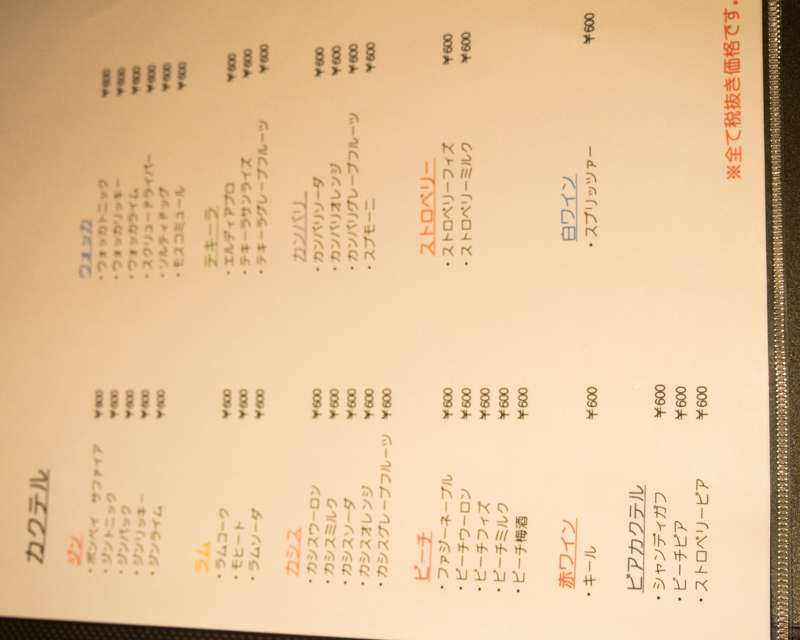 カクテル
ジン
・ボンベイ サファイア ¥800
・ジントニック ¥600
・ジンバック ¥600
・ジンリッキー ¥600
・ジンライム ¥600
ラム
・ラムコーク ¥600
・モヒート ¥600
・ラムソーダ ¥600
カシス
・カシスウーロン ¥600
・カシスミルク ¥600
・カシスソーダ ¥600
・カシスオレンジ ¥600
・カシスグレープフルーツ ¥600
ピーチ
・ファジーネーブル ¥600
・ピーチウーロン ¥600
・ピーチフィズ ¥600
・ピーチミルク ¥600
・ピーチ梅酒 ¥600
赤ワイン
・キール ¥600
ビアカクテル
・シャンディガフ ¥600
・ピーチビア ¥600
・ストロベリービア ¥600
ウォッカ
・ウォッカトニック ¥600
・ウォッカリッキー ¥600
・ウォッカライム ¥600
・スクリュードライバー ¥600
・ソルティドッグ ¥600
・モスコミュール ¥600
テキーラ
・エルディアブロ ¥600
・テキーラサンライズ ¥600
・テキーラグレープフルーツ ¥600
カンパリ
・カンパリソーダ ¥600
・カンパリオレンジ ¥600
・カンパリグレープフルーツ ¥600
・スプモーニ ¥600
ストロベリー
・ストロベリーフィズ ¥600
・ストロベリーミルク ¥600
白ワイン
・スプリッツァー ¥600
※全て税抜き価格です。